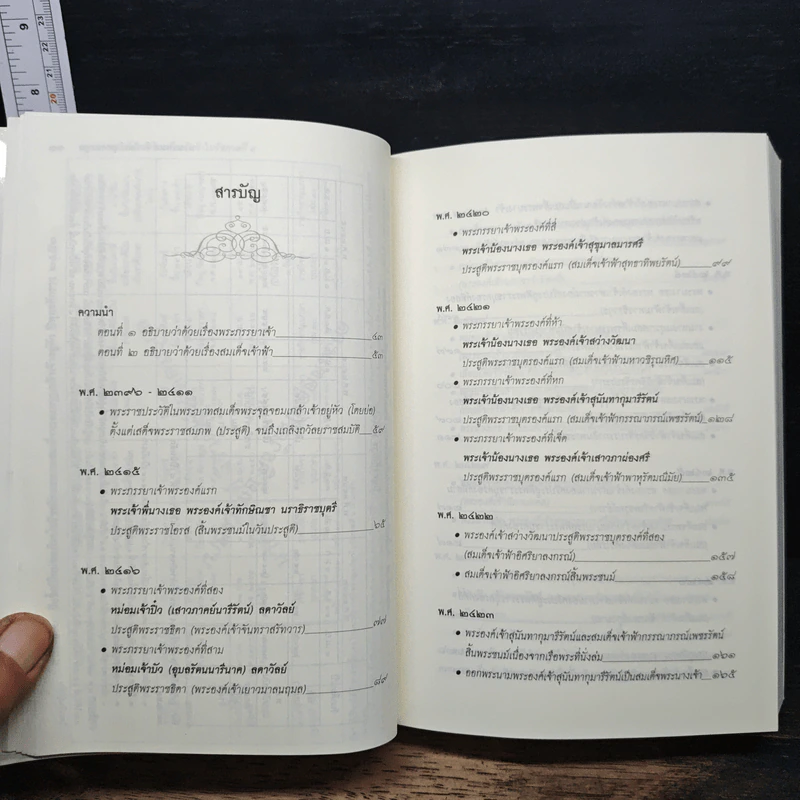 สารบัญ
ความนำ
ตอนที่ ๑ อธิบายว่าด้วยเรื่องพระภรรยาเจ้า ๔๓
ตอนที่ ๒ อธิบายว่าด้วยเรื่องสมเด็จเจ้าฟ้า ๕๓
พ.ศ. ๒๓๙๖ - ๒๔๑๑
• พระราชประวัติในพระบาทสมเด็จพระจุลจอมเกล้าเจ้าอยู่หัว (โดยย่อ)
ตั้งแต่เสด็จพระราชสมภพ (ประสูติ) จนถึงเถลิงถวัลยราชสมบัติ ๕๙
พ.ศ. ๒๔๑๕
• พระภรรยาเจ้าพระองค์แรก
พระเจ้าพี่นางเธอ พระองค์เจ้าทักษิณชา นราธิราชบุตรี
ประสูติพระราชโอรส (สิ้นพระชนม์ในวันประสูติ) ๖๕
พ.ศ. ๒๔๑๖
• พระภรรยาเจ้าพระองค์ที่สอง
หม่อมเจ้าปิ๋ว (เสาวภาคย์นารีรัตน์) ลดาวัลย์
ประสูติพระราชธิดา (พระองค์เจ้าจันทราสรัทวาร) ๗๗
• พระภรรยาเจ้าพระองค์ที่สาม
หม่อมเจ้าบัว (อุบลรัตนนารีนาค) ลดาวัลย์
ประสูติพระราชธิดา (พระองค์เจ้าเยาวมาลนฤมล) ๘๙
พ.ศ. ๒๔๒๐
• พระภรรยาเจ้าพระองค์ที่สี่
พระเจ้าน้องนางเธอ พระองค์เจ้าสุขุมาลมารศรี
ประสูติพระราชบุตรองค์แรก (สมเด็จเจ้าฟ้าสุทธาทิพยรัตน์) ๙๙
พ.ศ. ๒๔๒๑
• พระภรรยาเจ้าพระองค์ที่ห้า
พระเจ้าน้องนางเธอ พระองค์เจ้าสว่างวัฒนา
ประสูติพระราชบุตรองค์แรก (สมเด็จเจ้าฟ้ามหาวชิรุณหิศ) ๑๑๕
• พระภรรยาเจ้าพระองค์ที่หก
พระเจ้าน้องนางเธอ พระองค์เจ้าสุนันทากุมารีรัตน์
ประสูติพระราชบุตรองค์แรก (สมเด็จเจ้าฟ้ากรรณาภรณ์เพชรรัตน์) ๑๒๘
• พระภรรยาเจ้าพระองค์ที่เจ็ด
พระเจ้าน้องนางเธอ พระองค์เจ้าเสาวภาผ่องศรี
ประสูติพระราชบุตรองค์แรก (สมเด็จเจ้าฟ้าพาหุรัดมณีมัย) ๑๓๕
พ.ศ. ๒๔๒๒
• พระองค์เจ้าสว่างวัฒนาประสูติพระราชบุตรองค์ที่สอง
(สมเด็จเจ้าฟ้าอิศริยาลงกรณ์) ๑๕๗
• สมเด็จเจ้าฟ้าอิศริยาลงกรณ์สิ้นพระชนม์ ๑๕๘
พ.ศ. ๒๔๒๓
• พระองค์เจ้าสุนันทากุมารีรัตน์และสมเด็จเจ้าฟ้ากรรณาภรณ์เพชรรัตน์
สิ้นพระชนม์เนื่องจากเรือพระที่นั่งล่ม ๑๖๑
• ออกพระนามพระองค์เจ้าสุนันทากุมารีรัตน์เป็นสมเด็จพระนางเจ้า ๑๖๕
9
8
23
22
21
20